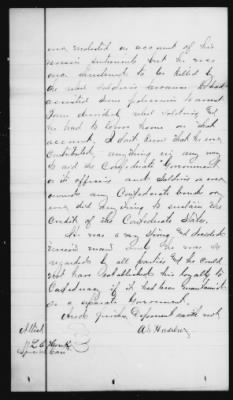 was molested on account of his
Union sentiments but he was
once threatened to be killed by
the rebel soldiers because he had
assisted some policemen to arrest
some drunken rebel soldiers &
he had to leave home on that
account. I dont know that he ever
contributed anything in any way
to aid the Confederate Government
or its officers and soldiers or ever
owned any Confederate bonds or
ever did anything to sustain the
Credit of the Confederate States.
He was a very strong & decided
Union man and he was so
regarded by all parties & he could
not have established his loyalty to
Confederacy if it had been maintained
as a separate Government.
And further Deponent saith not
Attest
Special Com